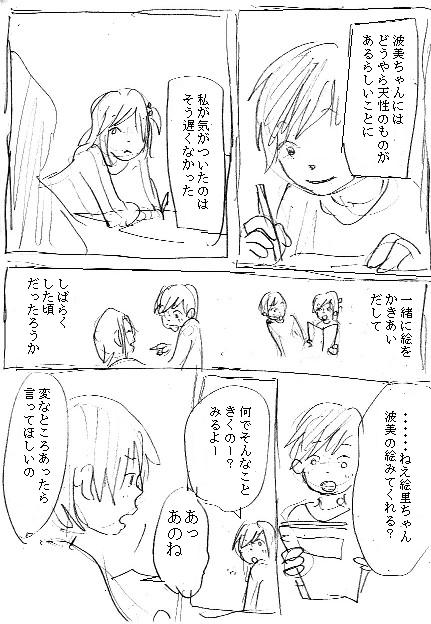 波美ちゃんには
どうやら天性のものが
あるらしいことに
私が気がついたのは
そう遅くなかった
一緒に絵を
かきあい
だして
しばらく
した頃
だったろうか
・・・・・ねえ絵里ちゃん
波美の絵みてくれる？
何でそんなこと
きくのー？
みるよー
あっ
あのね
変なところあったら
言ってほしいの